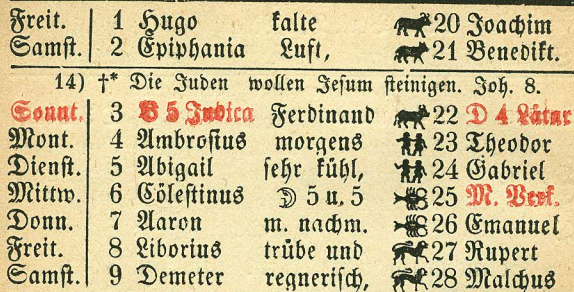 Freit. 1 Hugo kalte 20 Joachim
Samst. 2 Epiphania Luft, 21 Benedikt.
14) †* Die Juden wollen Jesum steinigen. Joh. 8.
Sonnt. 3 B 5 Judica Ferdinand 22 D 4 Lätar
Mont. 4 Ambrosius morgens 23 Theodor
Dienst. 5 Abigail sehr kühl, 24 Gabriel
Mittw. 6 Cölestinus ☽ 5 u. 5 25 M. Verk.
Donn. 7 Aaron m. nachm. 26 Emanuel
Freit. 8 Liborius trübe und 27 Rupert
Samst. 9 Demeter regnerisch, 28 Malchus